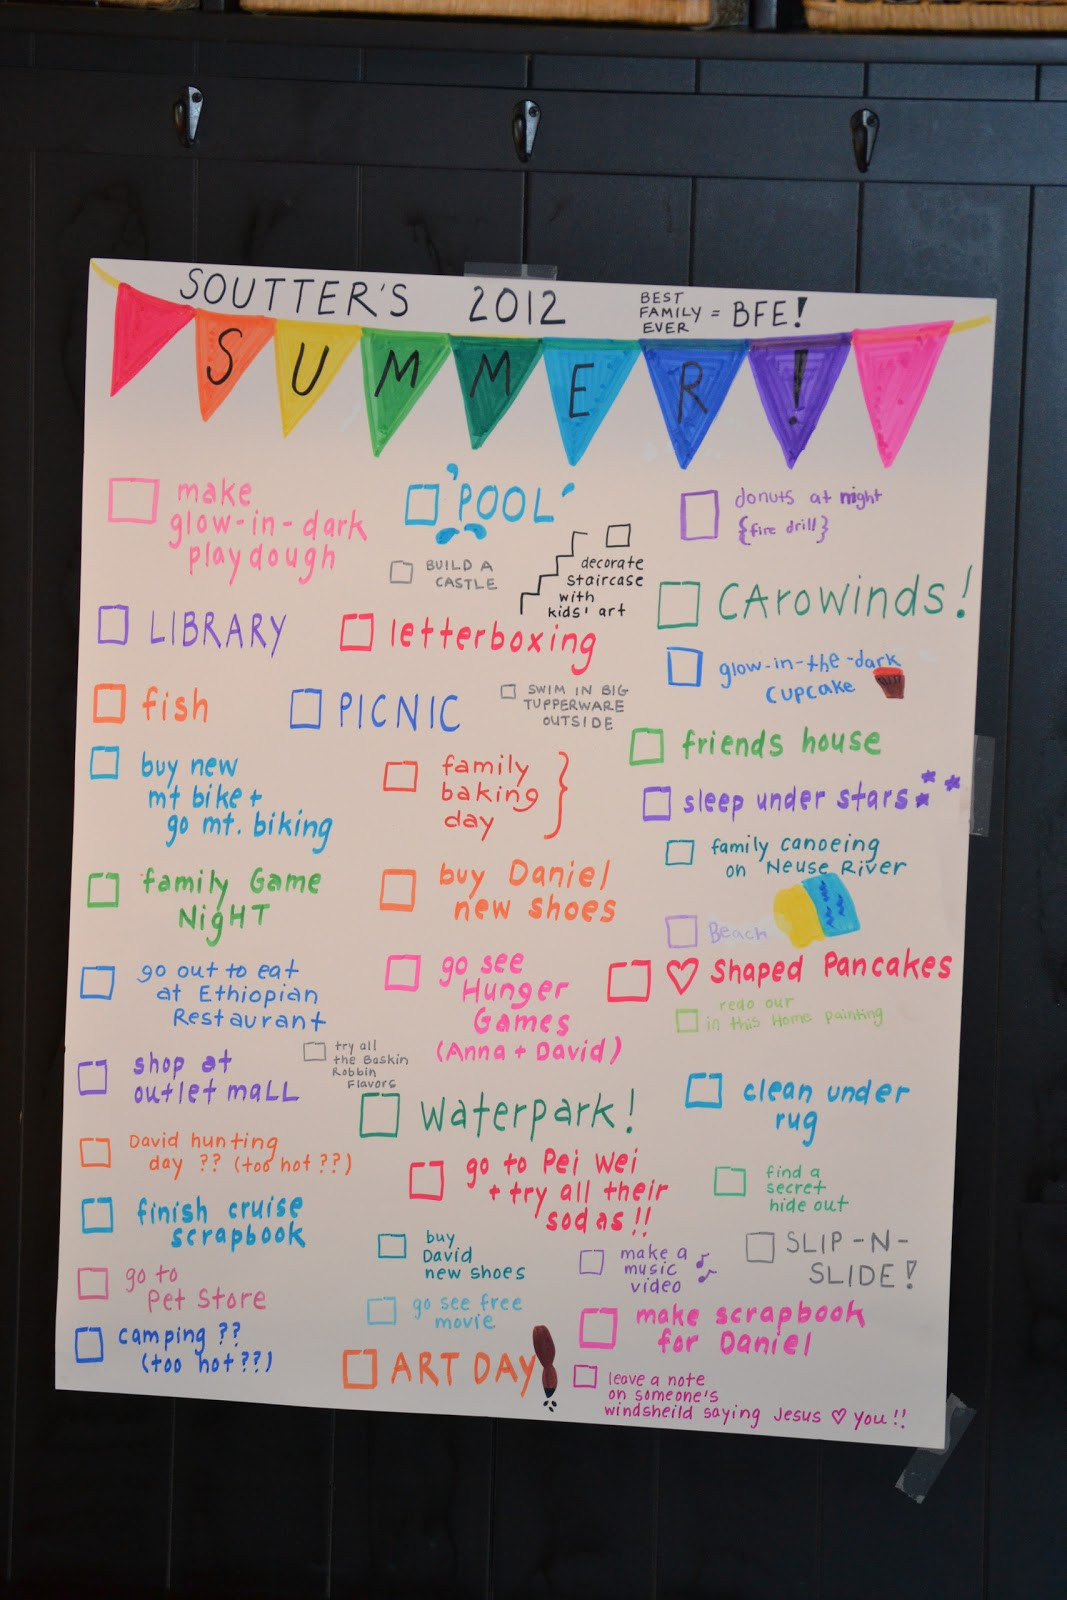 SOUTTER'S 2012
BEST
FAMILY = BFE!
EVER
SUMMER!
make
glow-in-dark
playdough
POOL
donuts at night
{fire drill}
BUILD A
CASTLE
decorate
staircase
with
kids' art
CAROWINDS!
LIBRARY
letterboxing
glow-in-the-dark
cupcake
fish
PICNIC
SWIM IN BIG
TUPPERWARE
OUTSIDE
friends house
buy new
mt bike +
go mt. biking
family
baking
day
sleep under stars
family canoeing
on Neuse River
family Game
NigHT
buy Daniel
new shoes
Beach
go out to eat
at Ethiopian
Restaurant
go see
Hunger
Games
(Anna + David)
♡ shaped Pancakes
redo our
in this Home painting
shop at
outlet mall
try all
the Baskin
Robbin
Flavors
waterpark!
clean under
rug
David hunting
day ?? (too hot ??)
go to Pei Wei
+ try all their
sodas!!
find a
secret
hide out
finish cruise
scrapbook
buy
David
new shoes
make a
music
video
SLIP-N-
SLIDE!
go to
Pet Store
go see free
movie
make scrapbook
for Daniel
camping ??
(too hot??)
ART DAY
leave a note
on someone's
windsheild saying Jesus ♡ you!!